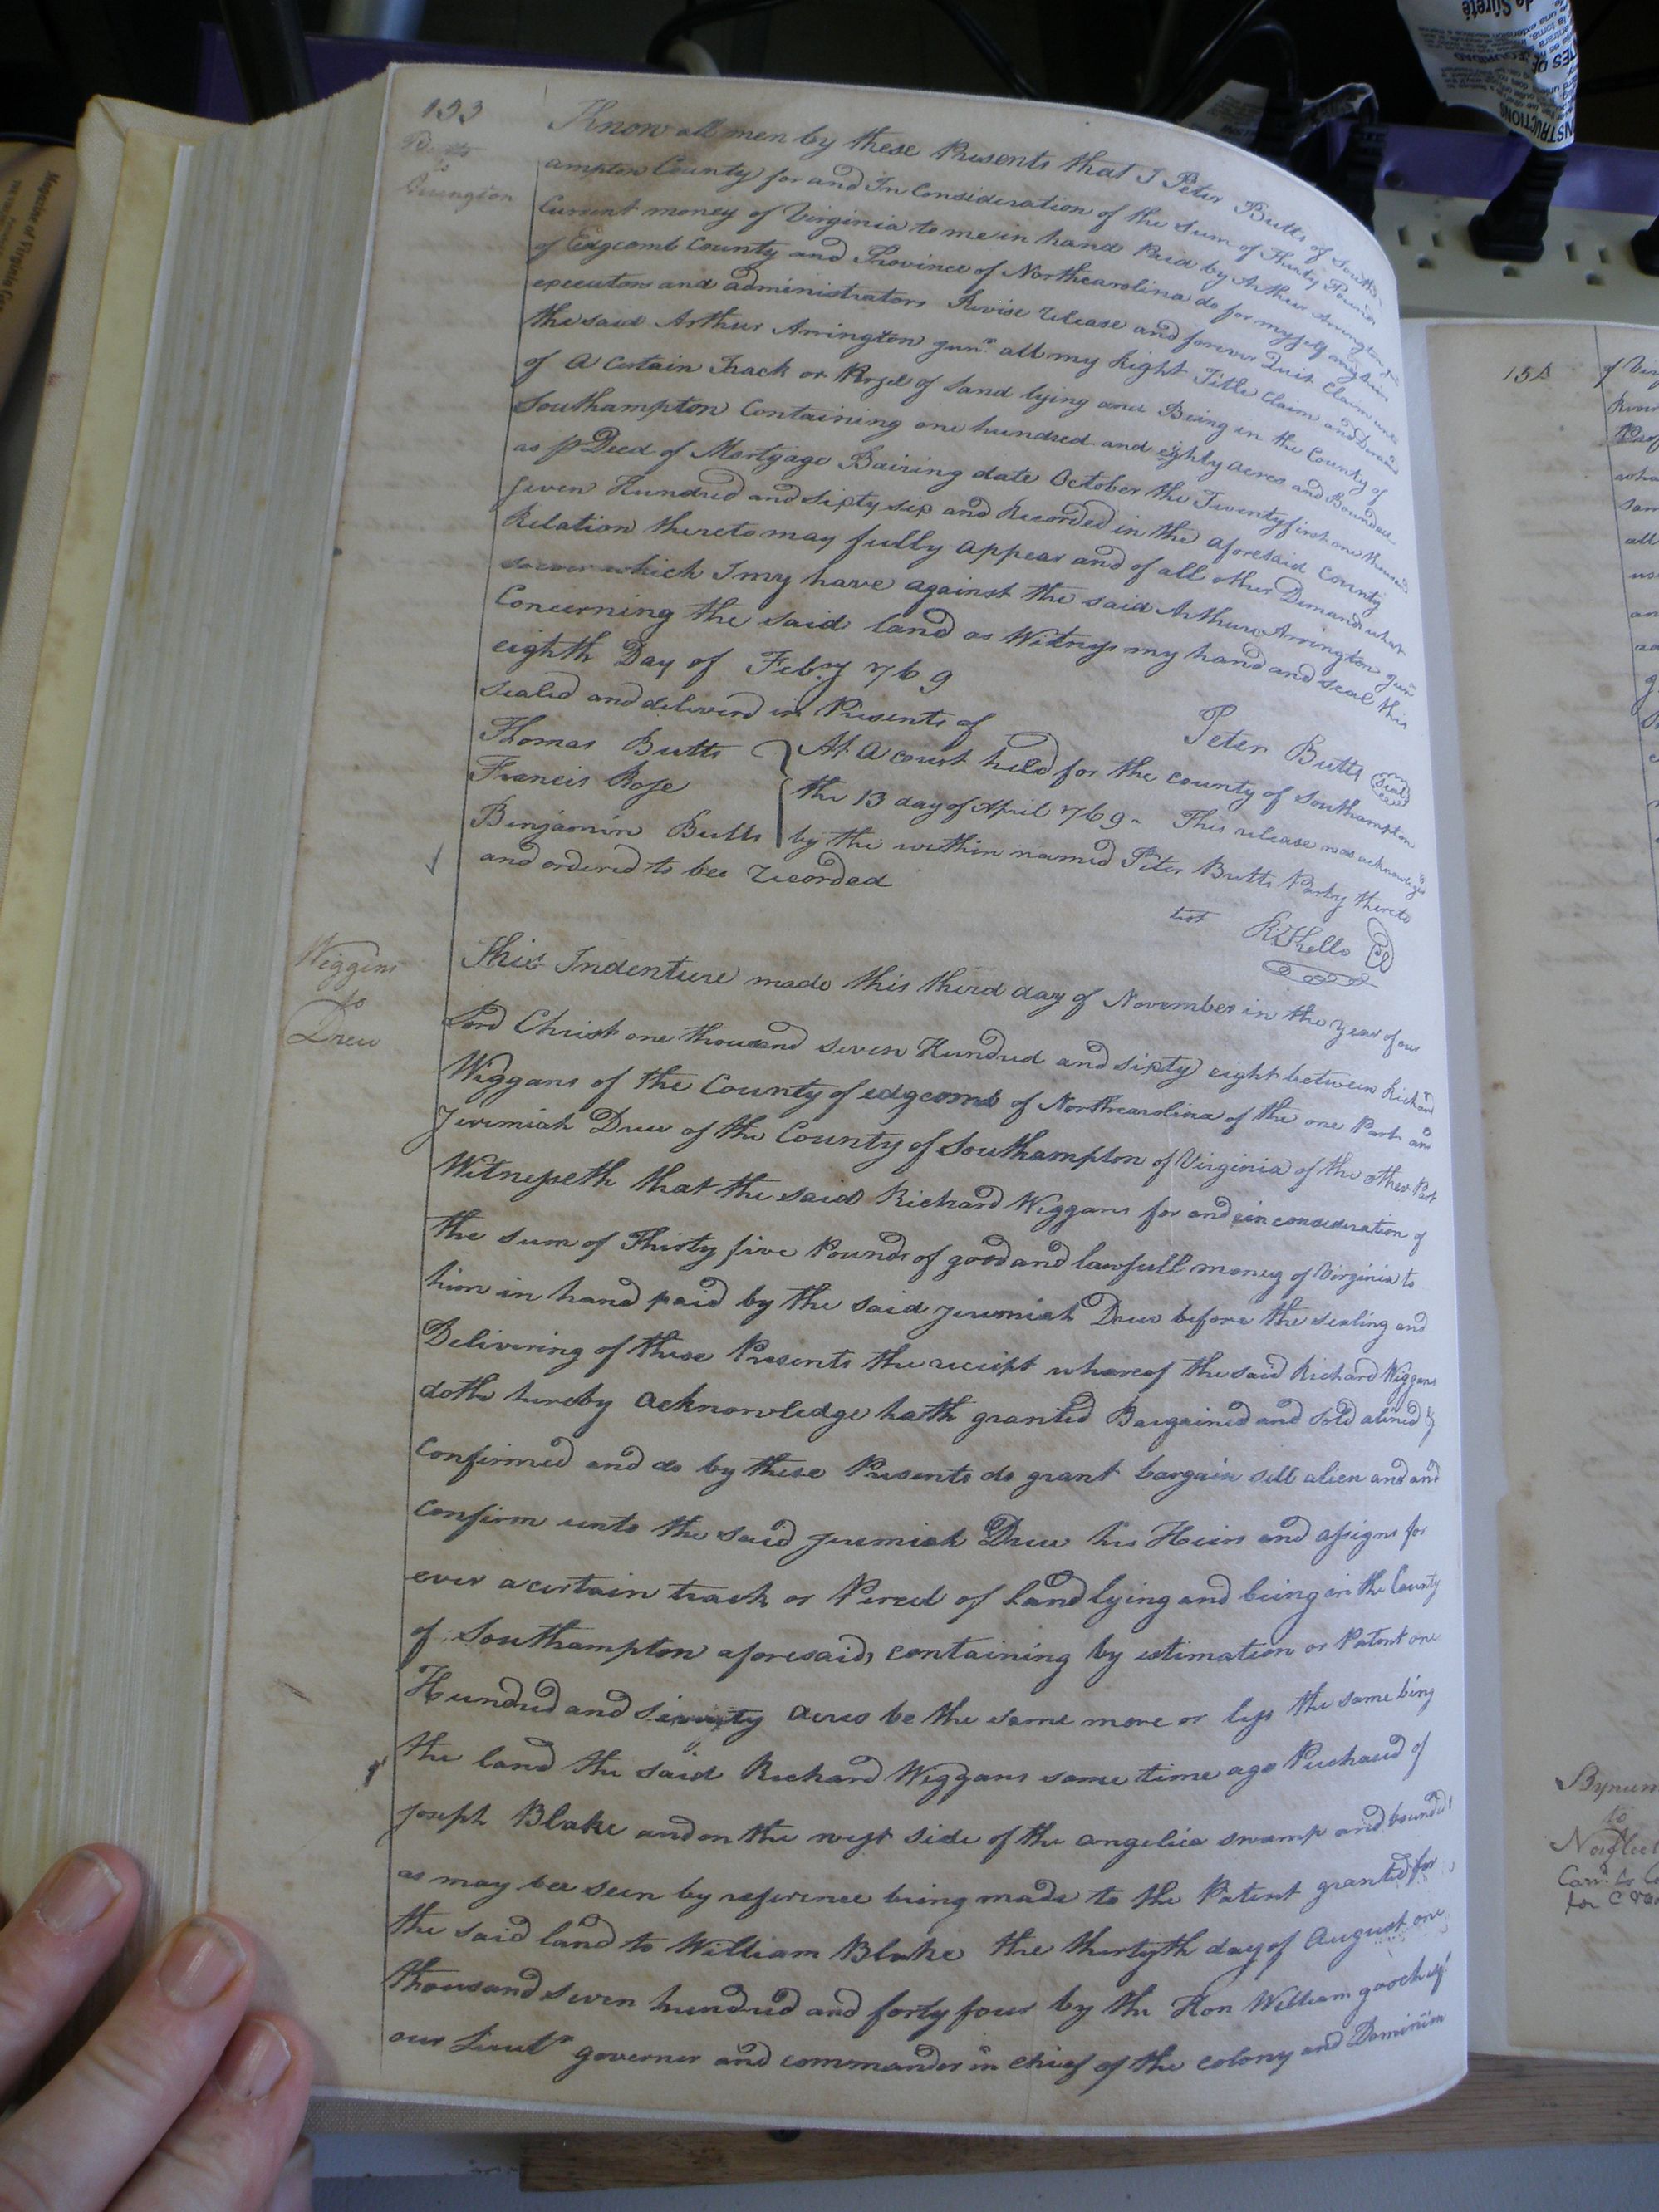 153
Butts
to
Arrington
Know all men by these Presents that I Peter Butts of South
ampton County for and In Consideration of the Sum of Thirty Pounds
Current money of Virginia to me in hand Paid by Arthur Arrington
of Edgcomb County and Province of Northcarolina do for myself my heirs
executors and administrators Revise release and forever Quit Claim unto
the said Arthur Arrington junr. all my Right Title Claim and Demand
of A Certain Track or Parsel of Land lying and Being in the County of
Southampton Containing one hundred and eighty acres and Bounded
as pr Deed of Mortgage Bairing date October the Twentyfirst one thousand
seven Hundred and sixty six and Recorded in the aforesaid County
Relation thereto may fully appear and of all other Demands what
soever which I my have against the said Arthur Arrington junr
Concerning the said land as Witness my hand and seal this
eighth Day of Febry 1769
sealed and deliverd in Presents of
Peter Butts
Seal
Thomas Butts
Francis Rose
Benjamin Butts
At A Court held for the County of Southampton
the 13 day of April 1769. This release was acknowledged
by the within named Peter Butts Party thereto
and ordered to bee recorded
test
R: Kello
Wiggins
to
Drew
This Indenture made this third day of November in the year of our
Lord Christ one thousand seven Hundred and sixty eight between Richard
Wiggans of the County of edgcomb of Northcarolina of the one Part and
Jeremiah Drew of the County of Southampton of Virginia of the other Part
Witnesseth that the said Richard Wiggans for and in consideration of
the sum of Thirty five Pounds of good and lawfull money of Virginia to
him in hand paid by the said jeremiah Drew before the sealing and
Delivering of these Presents the receipt whereof the said Richard Wiggans
doth hereby acknowledge hath granted Bargained and sold aliened &
confirmed and do by these Presents do grant bargain sell alien and and
confirm unto the said jeremiah Drew his Heirs and assigns for
ever a certain track or Percel of Land lying and being in the County
of Southampton aforesaid, containing by estimation or Patent one
Hundred and acres be the same more or less the same being
the land the said Richard Wiggans some time ago Puchased of
Joseph Blake and on the west side of the angelica swamp and bounded
as may bee seen by reference being made to the Patent granted for
the said land to William Blake the thirtyth day of August one
thousand seven hundred and forty four by the Hon William gooch esqr
our Lieutt governer and commander in chief of the colony and Dominion
154
of
all
Bynum
to